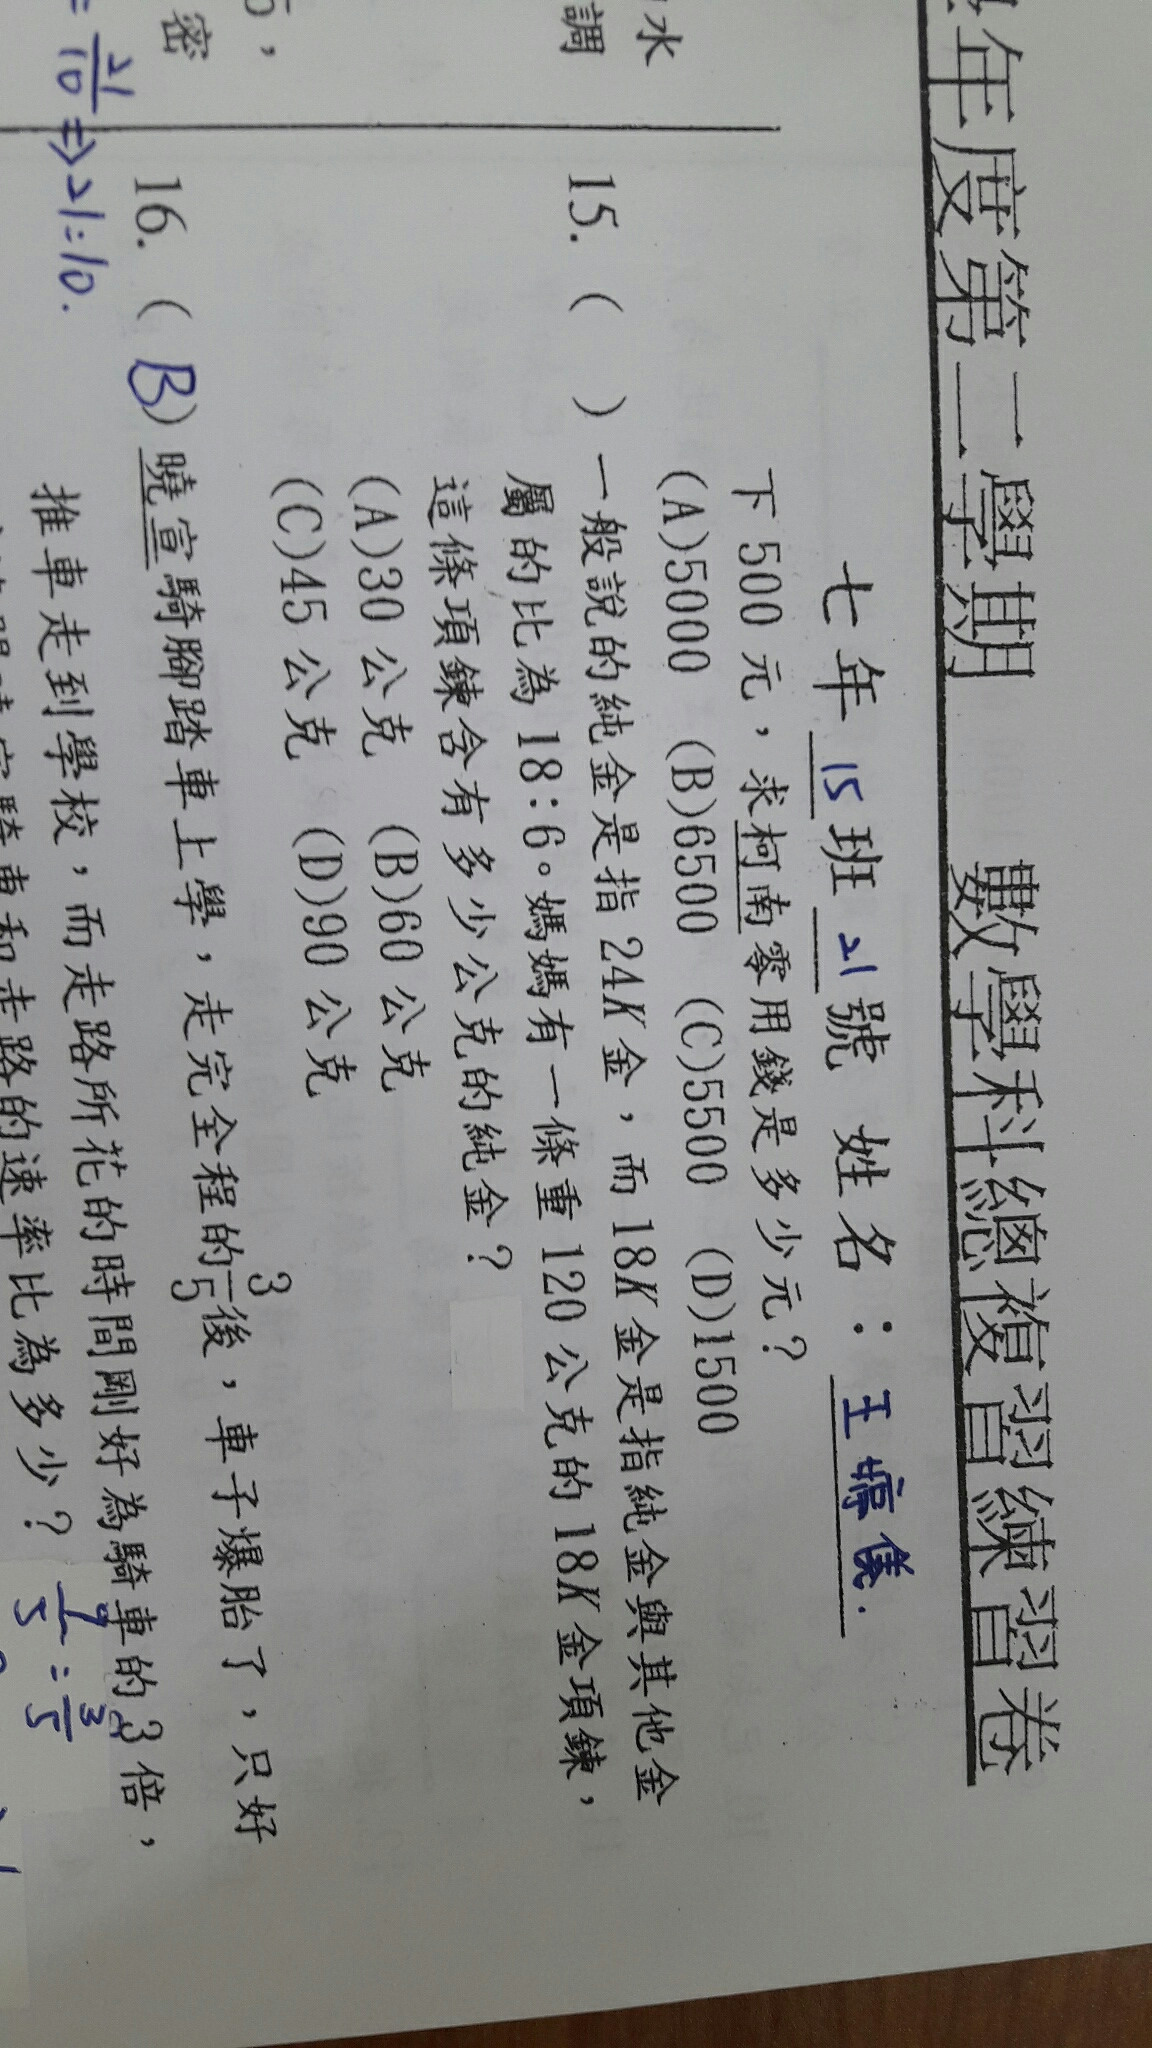 年度第二學期 數學科總複習練習卷
七年15班21號 姓名：王
水
調
5,
密
= 21/10 => 21:10.
下500元，求柯南零用錢是多少元？
(A)5000 (B)6500 (C)5500 (D)1500
15. ( ) 一般說的純金是指24K金，而18K金是指純金與其他金
屬的比為18:6。媽媽有一條重120公克的18K金項鍊，
這條項鍊含有多少公克的純金？
(A)30公克 (B)60公克
(C)45公克 (D)90公克
16. (B)曉宣騎腳踏車上學，走完全程的3/5後，車子爆胎了，只好
推車走到學校，而走路所花的時間剛好為騎車的3倍，
騎車和走路的速率比為多少？